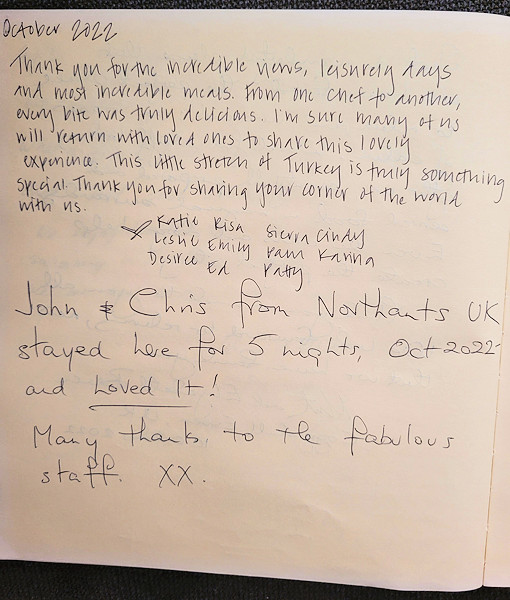 October 2022
Thank you for the incredible views, leisurely days
and most incredible meals. From one chef to another,
every bite was truly delicious. I'm sure many of us
will return with loved ones to share this lovely
experience. This little stretch of Turkey is truly something
special. Thank you for sharing your corner of the world
with us.
Katie Risa Sierra Cindy
Leslie Emily Pam Karina
Desiree Ed Patty
John & Chris from Northants UK
stayed here for 5 nights, Oct 2022
and Loved It!
Many thanks, to the fabulous
staff. XX.